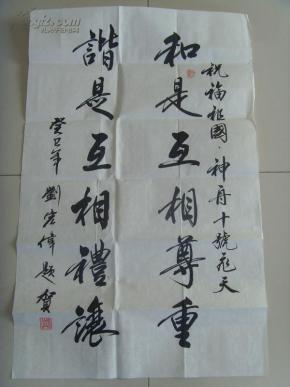 祝福祖國·神舟十號飛天
和是互相尊重
諧是互相禮讓
癸巳年 劉宏偉題賀